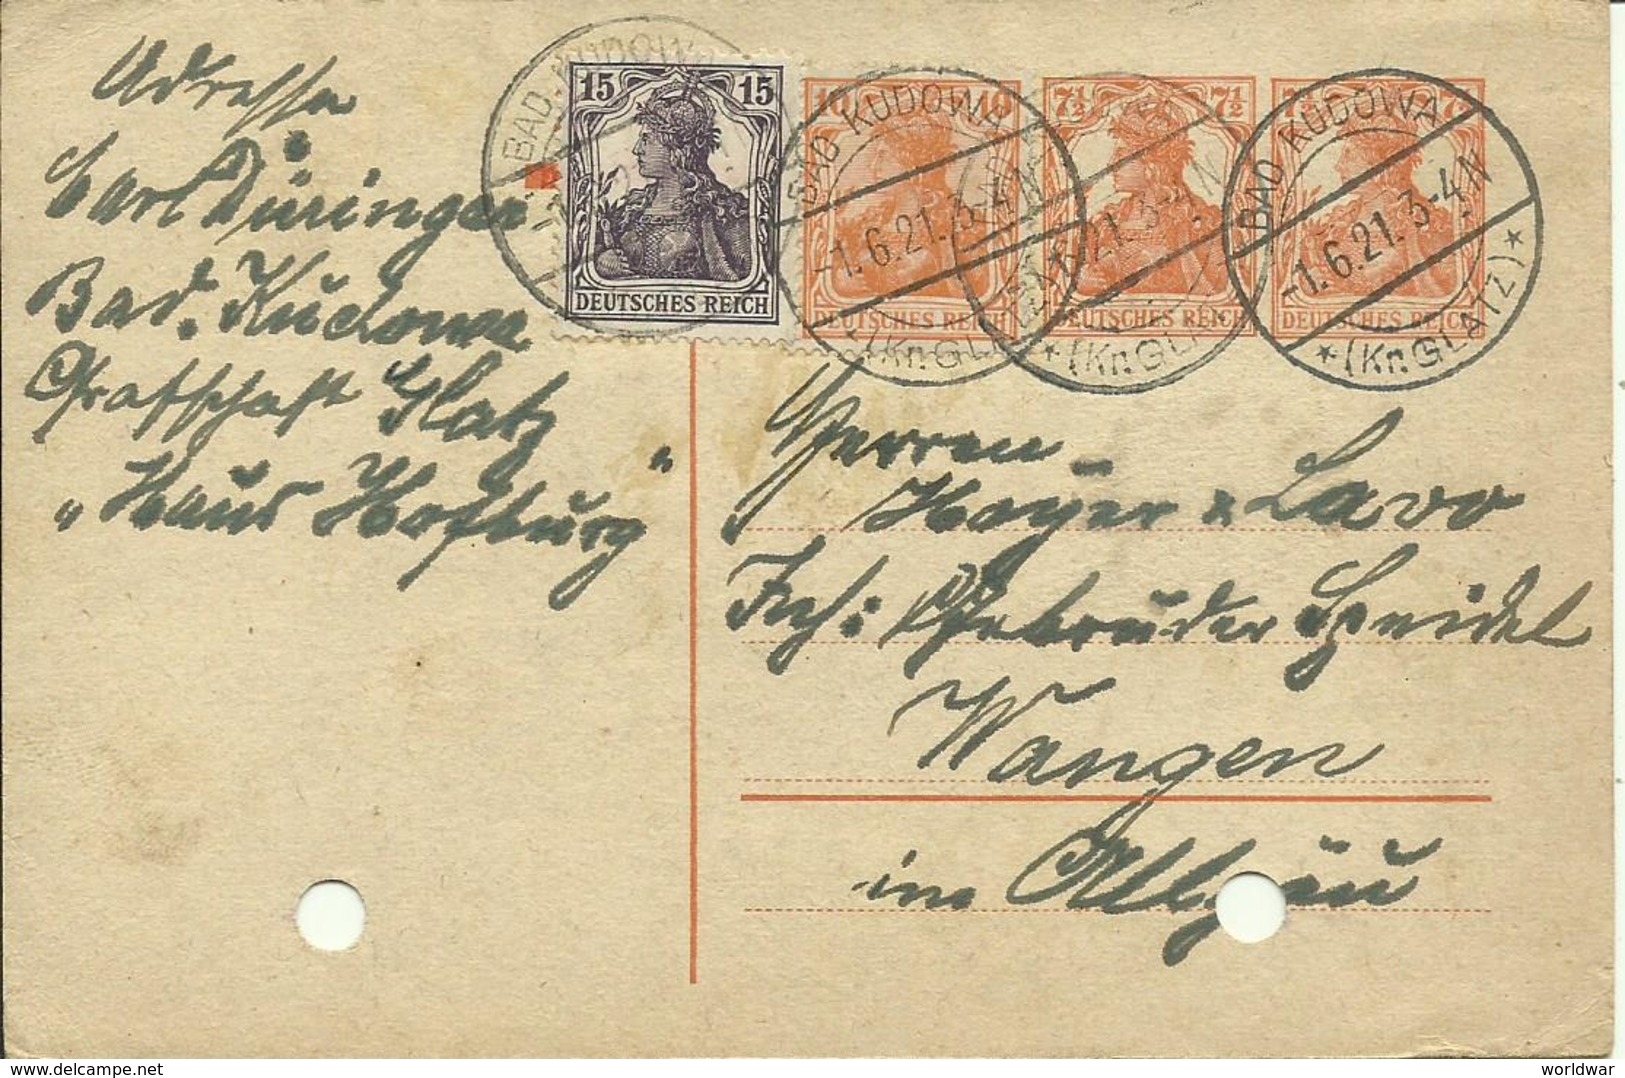 Adresse
Carl Düringer
Bad. Kudowa
Grafschaft Glatz
"Haus Hofburg"
15 15
DEUTSCHES REICH
10 10
DEUTSCHES REICH
7½ 7½
DEUTSCHES REICH
7½ 7½
DEUTSCHES REICH
BAD KUDOWA
BAD KUDOWA
-1.6.21. 3-4 N
(Kr. GLATZ)
21. 3-4 N
(Kr. GL
BAD KUDOWA
-1.6.21. 3-4 N
* (Kr. GLATZ) *
Herren
Hoyer & Lavo
Inh: Gebrüder Speidel
Wangen
im Allgäu
delcampe.net
worldwar